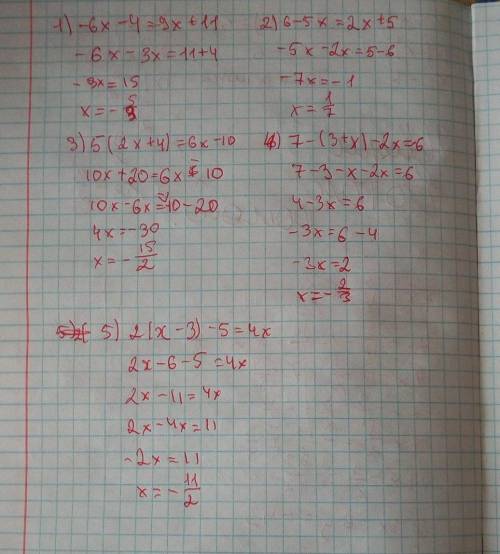 1) -6x - 4 = 9x + 11
-6x - 3x = 11 + 4
-9x = 15
x = - 5/3
2) 6 - 5x = 2x + 5
-5x - 2x = 5 - 6
-7x = -1
x = 1/7
3) 5(2x+4) = 6x - 10
10x + 20 = 6x - 10
10x - 6x = -10 - 20
4x = -30
x = - 15/2
4) 7 - (3+x) - 2x = 6
7 - 3 - x - 2x = 6
4 - 3x = 6
-3x = 6 - 4
-3x = 2
x = - 2/3
5) 2(x - 3) - 5 = 4x
2x - 6 - 5 = 4x
2x - 11 = 4x
2x - 4x = 11
-2x = 11
x = - 11/2